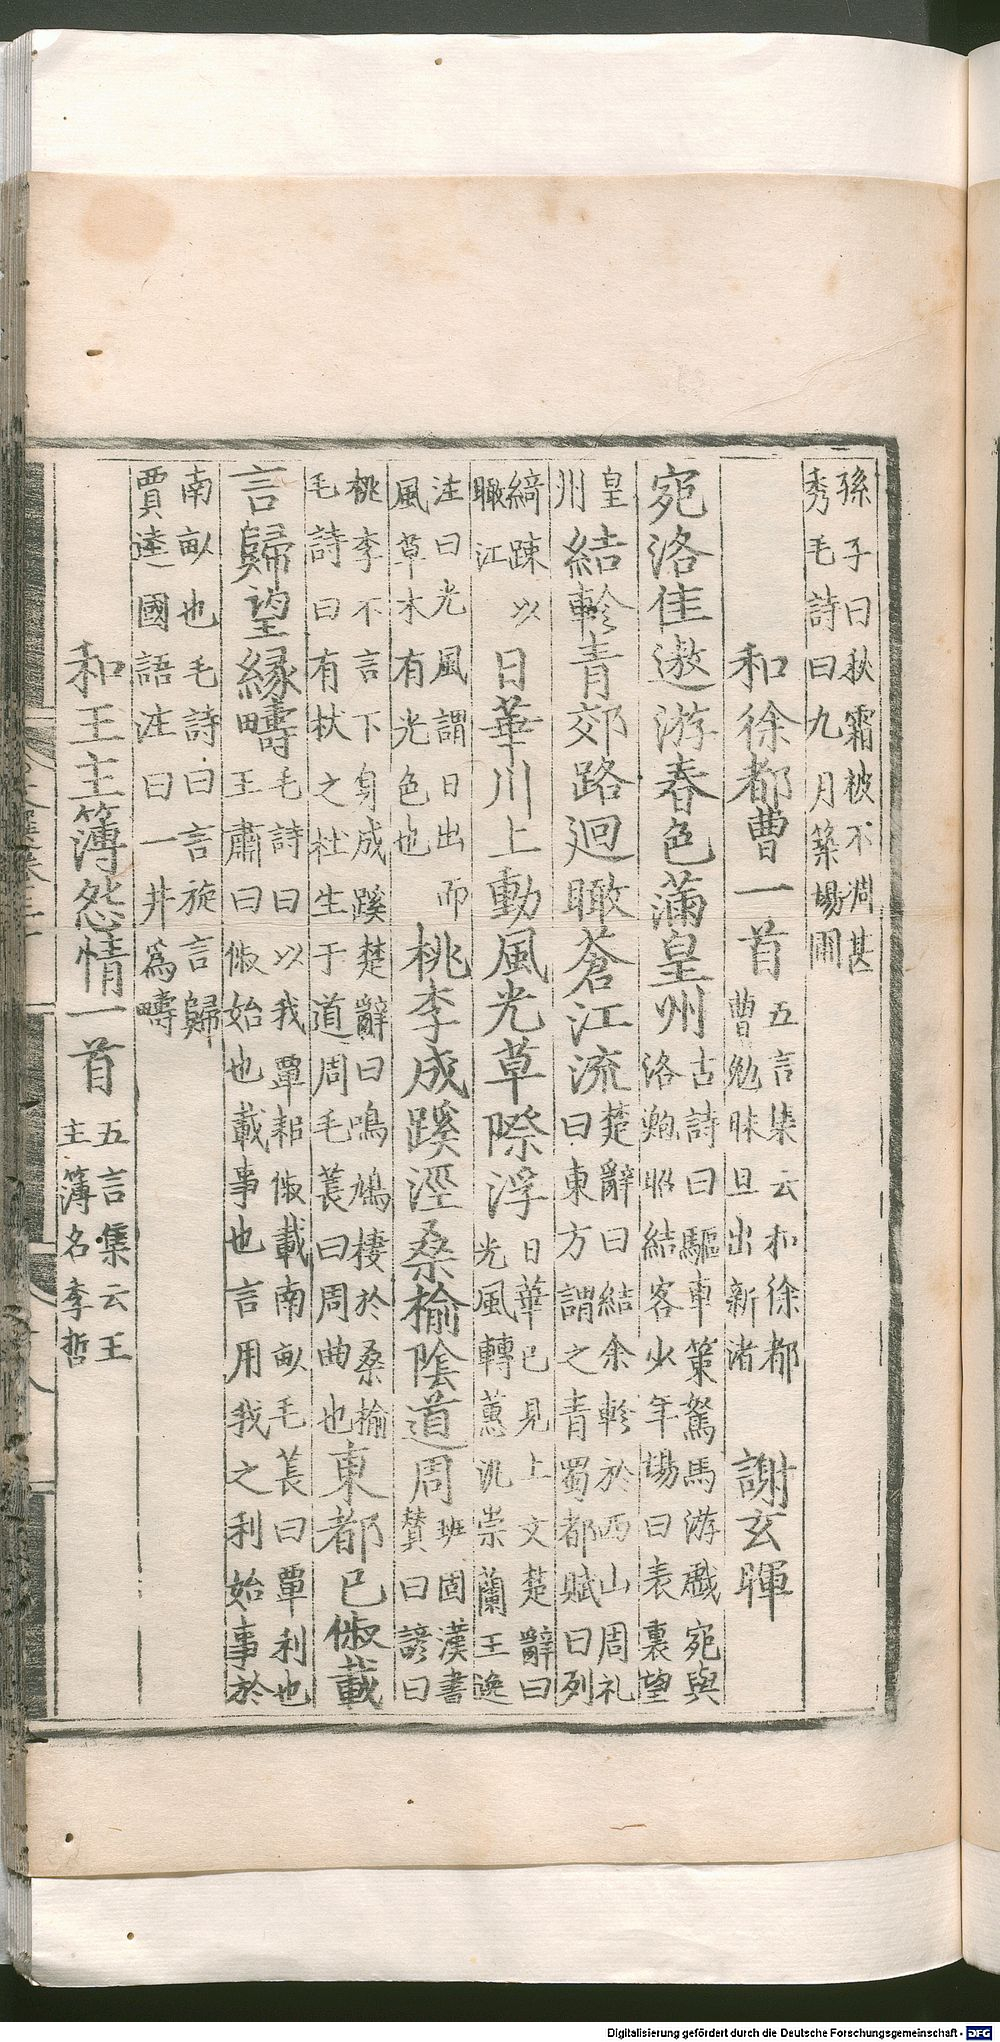 孫子曰秋霜被不凋甚
秀毛詩曰九月築塲圃
和徐都曹一首
五言集云和徐都
曹勉昧旦出新渚
謝玄暉
宛洛佳遨游春色滿皇州
古詩曰驅車策駑馬游戲宛與
洛鮑昭結客少年場曰表裏望
皇
州
結軫青郊路迴瞰蒼江流
楚辭曰結余軫於西山周礼
曰東方謂之青蜀都賦曰列
綺踈以
瞰江
日華川上動風光草際浮
日華已見上文楚辭曰
光風轉蕙汎崇蘭王逸
注曰光風謂日出而
風草木有光色也
桃李成蹊逕桑榆陰道周
班固漢書
賛曰諺曰
桃李不言下自成蹊楚辭曰鳴鳩棲於桑榆
毛詩曰有杕之杜生于道周毛萇曰周曲也
東都已俶載
言歸望緑疇
毛詩曰以我覃耜俶載南畝毛萇曰覃利也
王肅曰俶始也載事也言用我之利始事於
南畝也毛詩曰言旋言歸
賈逵國語注曰一井爲疇
和王主簿怨情一首
五言集云王
主簿名季哲
Digitalisierung gefördert durch die Deutsche Forschungsgemeinschaft - DFG